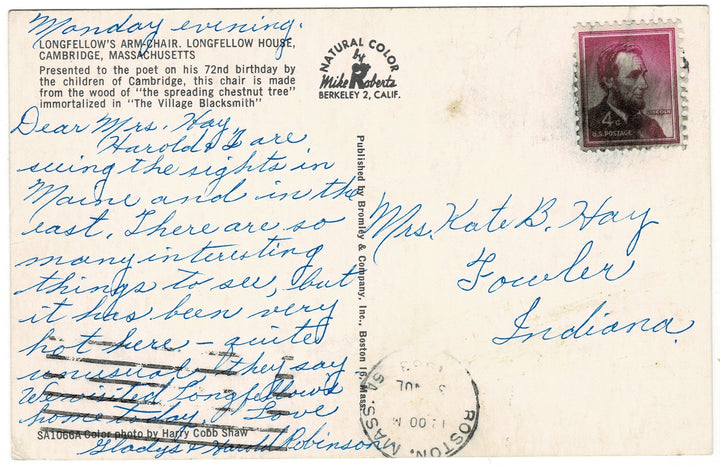 Monday evening.
LONGFELLOW'S ARM-CHAIR. LONGFELLOW HOUSE,
CAMBRIDGE, MASSACHUSETTS
Presented to the poet on his 72nd birthday by
the children of Cambridge, this chair is made
from the wood of "the spreading chestnut tree"
immortalized in "The Village Blacksmith"
Dear Mrs. Hay,
Harold & I are
seeing the sights in
Maine and in the
east. There are so
many interesting
things to see, but
it has been very
hot here - quite
unusual they say
We visited Longfellow's
home today. Love
Gladys & Harold Robinson
SA1066A Color photo by Harry Cobb Shaw
NATURAL COLOR
by
Mike Roberts
BERKELEY 2, CALIF.
Published by Bromley & Company, Inc., Boston 16, Mass.
LINCOLN
4¢
U.S. POSTAGE
Mrs. Kate B. Hay
Fowler
Indiana.
BOSTON, MASS.
JUL